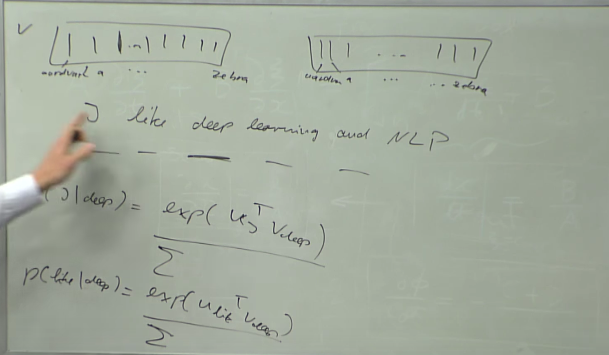 V
aardvark a ... zebra
aardvark a ... ... zebra
I like deep learning and NLP
p(I|deep) = exp(u_I^T v_deep) / Σ
p(like|deep) = exp(u_like^T v_deep) / Σ